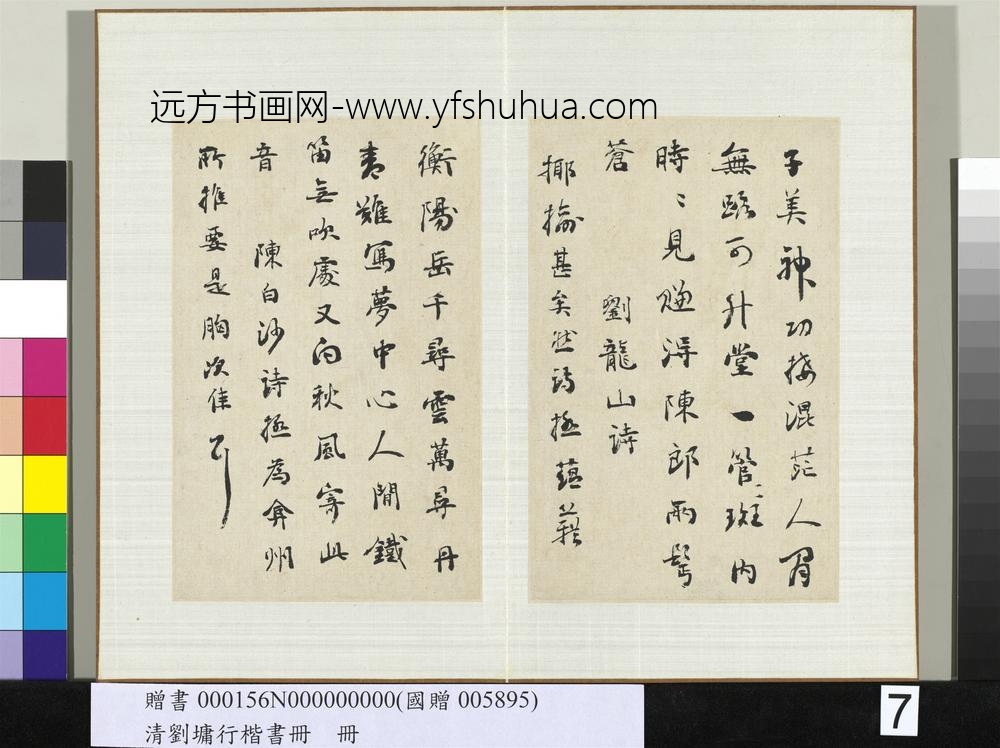 远方书画网-www.yfshuhua.com
子美神功接混茫人間
無路可升堂一管斑斑內
時時見賺得陳郎兩鬢
蒼　劉龍山詩
揶揄甚矣然語極蘊藉
衡陽岳千尋雲萬尋丹
青難寫夢中心人間鐵
笛無吹處又向秋風寄此
音　陳白沙詩極為弇州
所推要是胸次佳耳
贈書 000156N000000000(國贈 005895)
清劉墉行楷書冊　冊
7